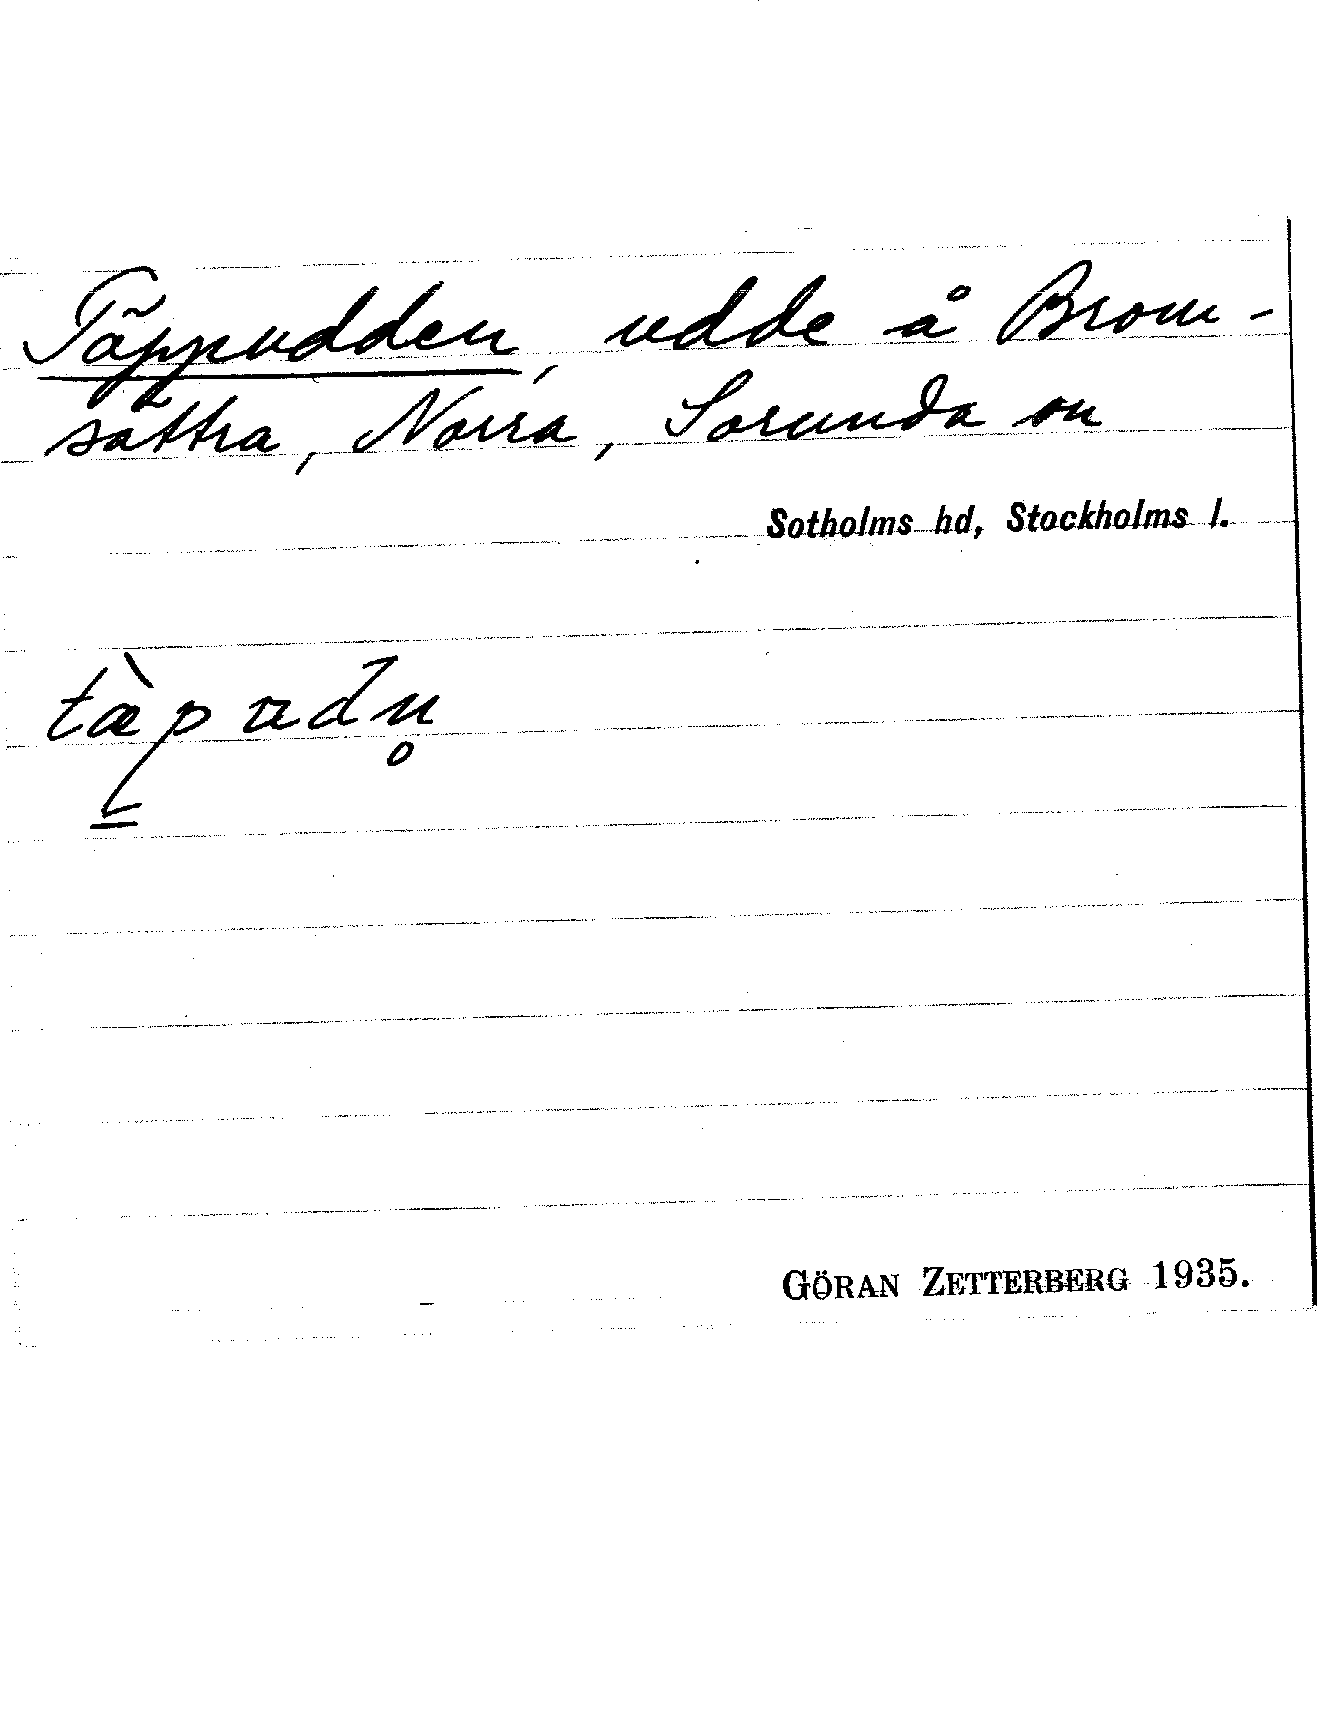 Täppudden, udde å Brom-
sättra, Norra, Sorunda sn
Sotholms hd, Stockholms l.
tæ̀pudn̥
GÖRAN ZETTERBERG 1935.